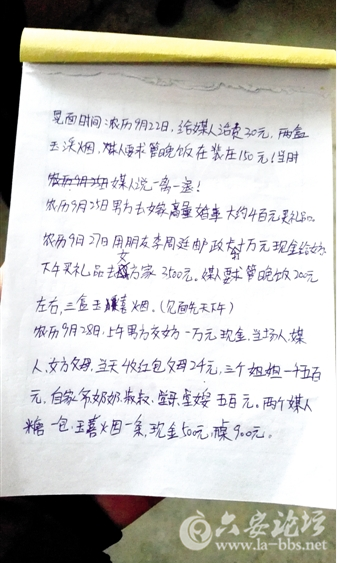 见面时间:农历9月22日,给媒人话费30元,两盒
玉溪烟,媒人要求管晚饭在裴庄150元(当时
媒人说一离一丧!
农历9月25日男方去女家商量婚事大约4百元买礼品。
农历9月27日用朋友李周延邮政卡十万元现金给女
下午买礼品去女方家3500元。媒人要求管晚饭200元
左右,三盒玉喜烟。(见面先天下午)
农历9月28日,上午男方交女方一万元现金,当场人,媒
人,女方父母,当天收红包父母24元,三个姐姐一千五百
元,自家爷奶奶叔叔,堂哥堂嫂五百元。两个媒人
糖一包,玉喜烟一条,现金50元,碟900元。
六安论坛
www.la-bbs.net